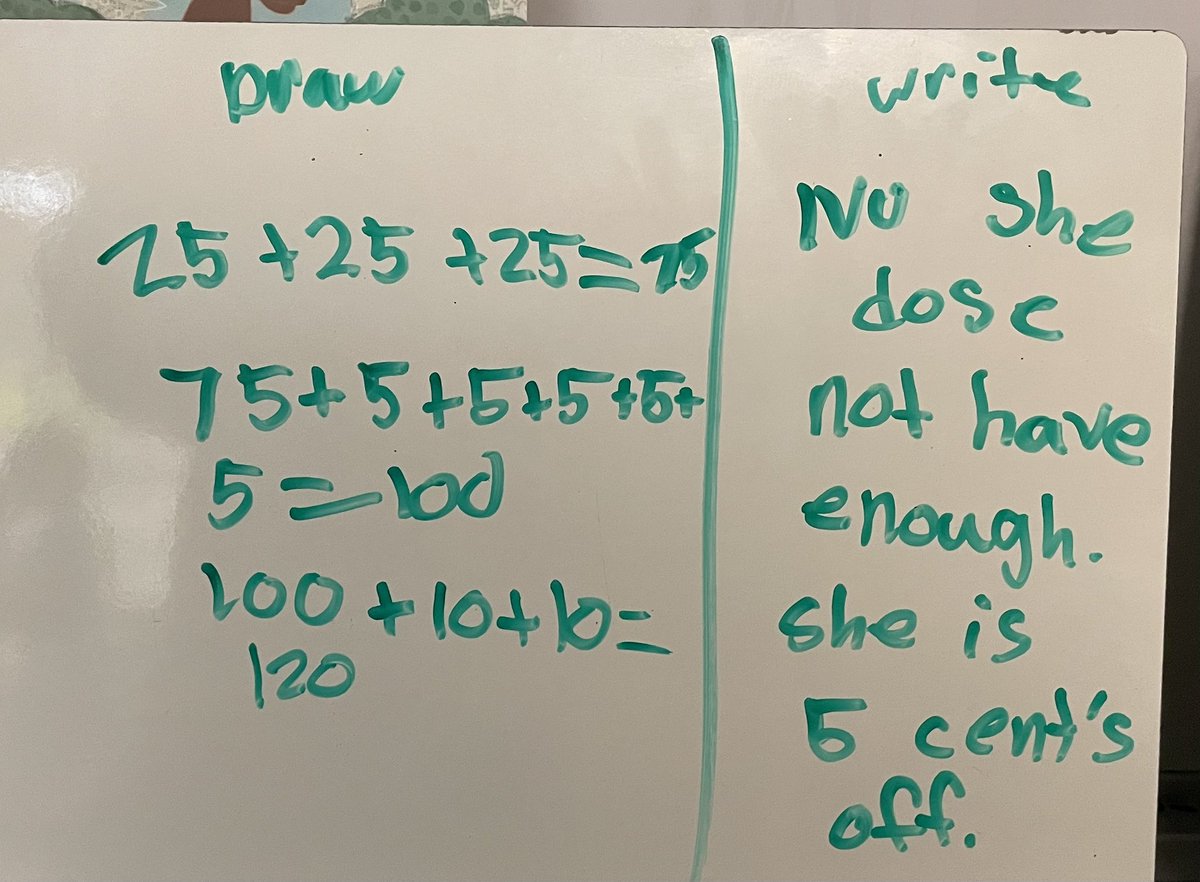 Draw
25 + 25 + 25 = 75
75 + 5 + 5 + 5 + 5 +
5 = 100
100 + 10 + 10 =
120
write
No she
dose
not have
enough.
she is
5 cent's
off.